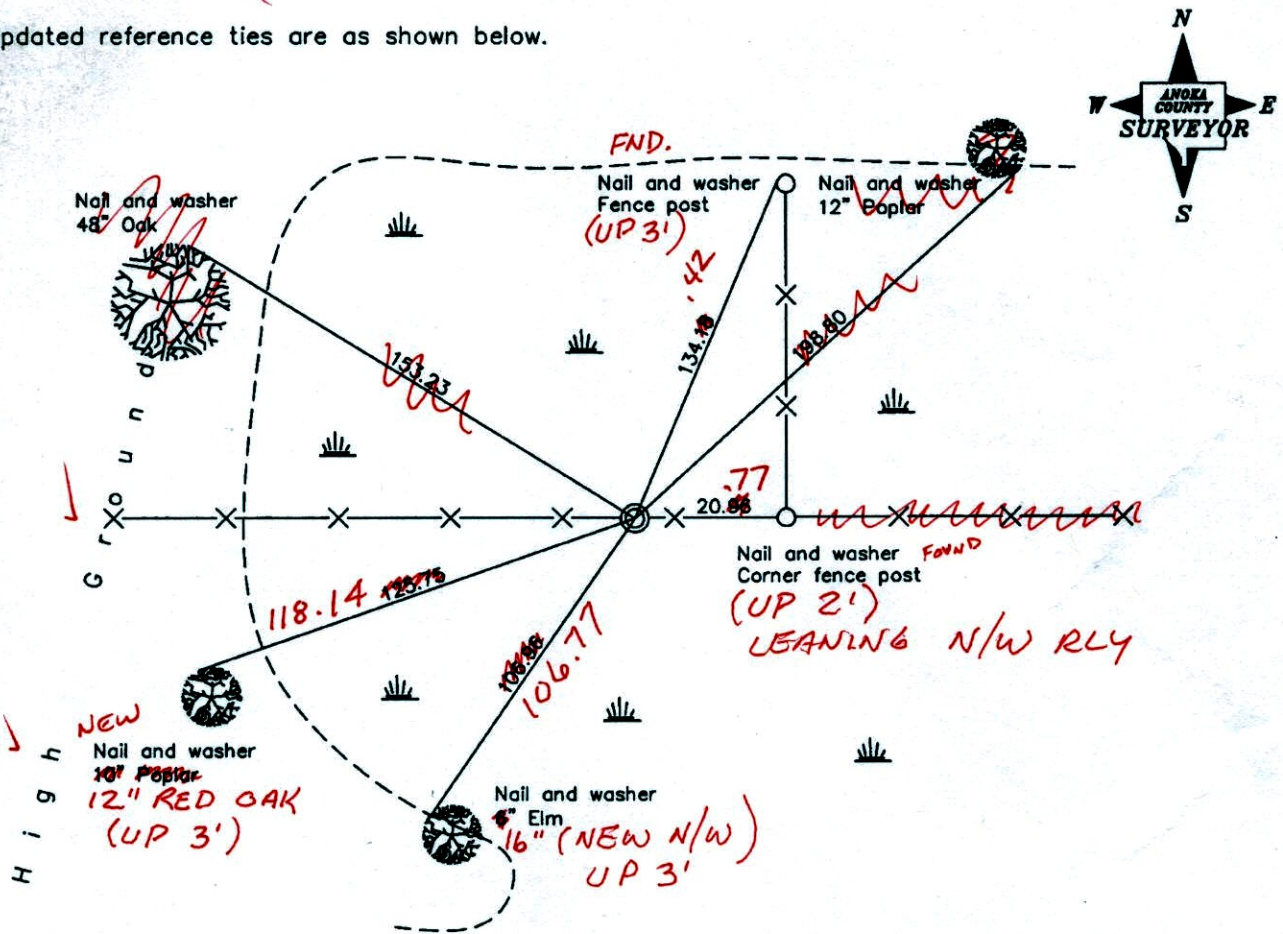 pdated reference ties are as shown below.
N
W ANOKA COUNTY E
SURVEYOR
S
FND.
Nail and washer
48" Oak
Nail and washer
Fence post
(UP 3')
Nail and washer
12" Poplar
.42
134.
198.80
153.23
.77
20.
Nail and washer FOUND
Corner fence post
(UP 2')
LEANING N/W RLY
118.14 125.75
106.77
High Ground
NEW
Nail and washer
10" Poplar
12" RED OAK
(UP 3')
Nail and washer
6" Elm
16" (NEW N/W)
UP 3'